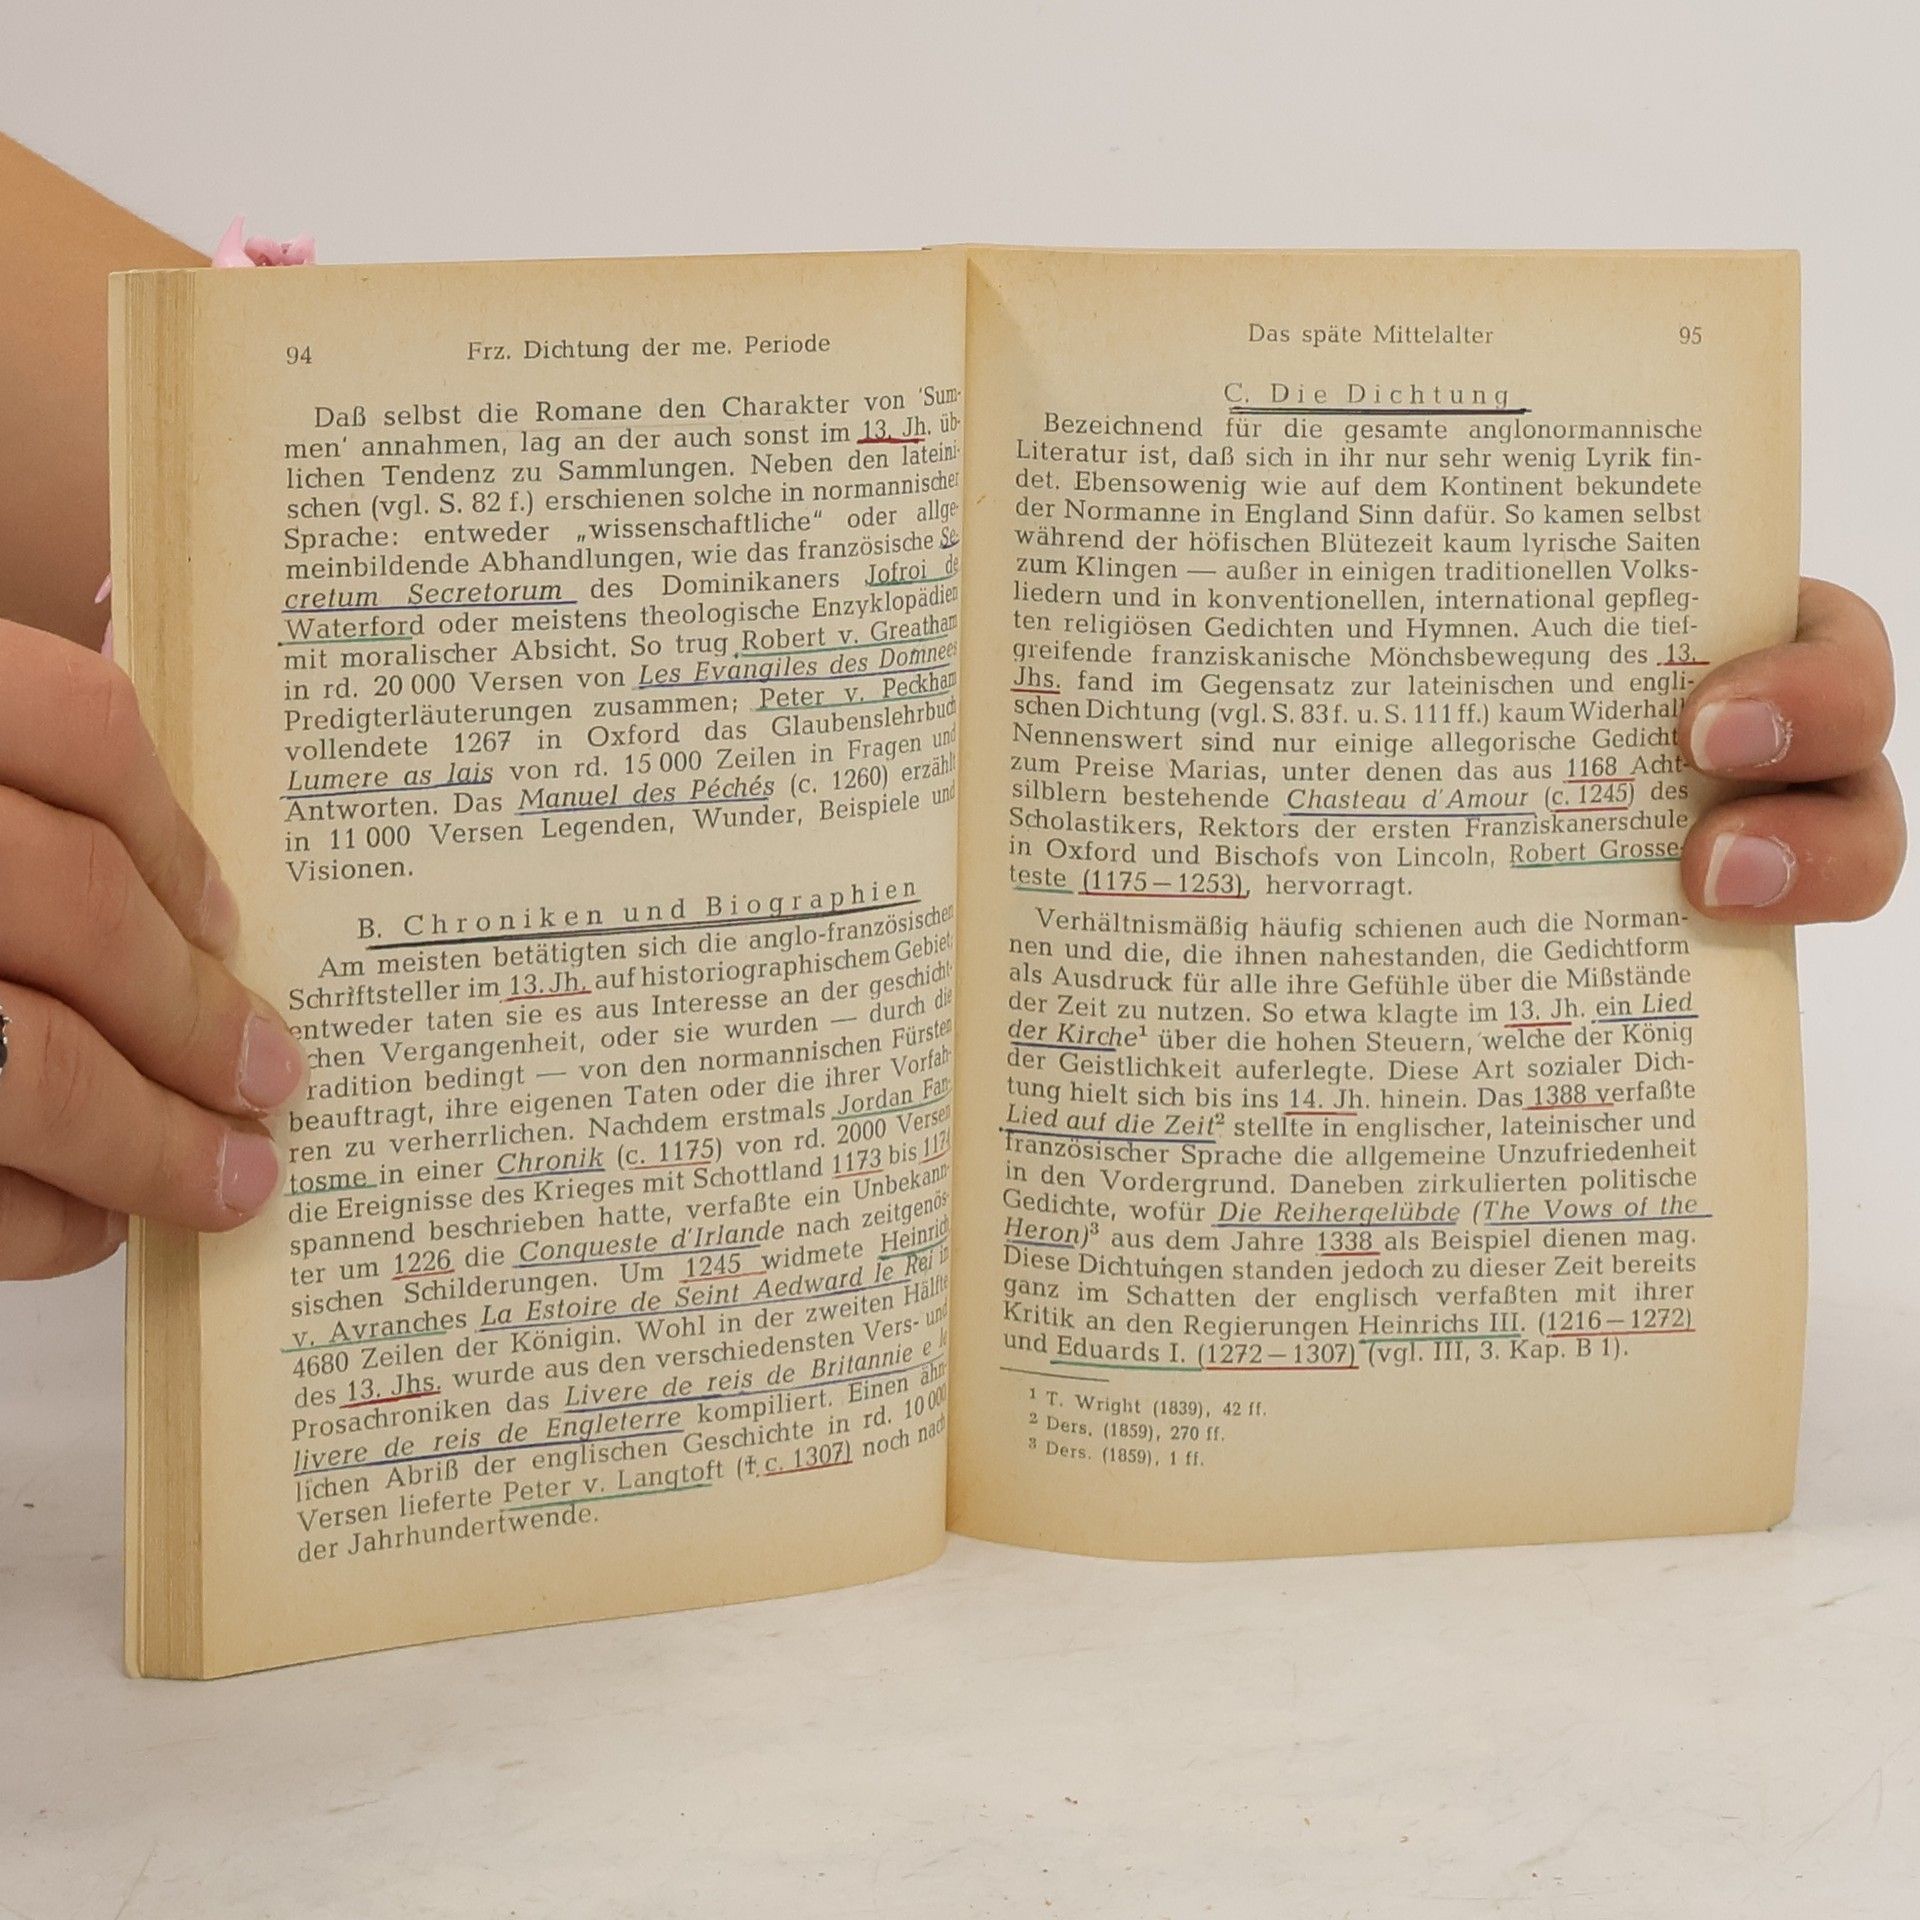 94
Frz. Dichtung der me. Periode
Daß selbst die Romane den Charakter von 'Sum-
men' annahmen, lag an der auch sonst im 13. Jh. üb-
lichen Tendenz zu Sammlungen. Neben den lateini-
schen (vgl. S. 82 f.) erschienen solche in normannischer
Sprache: entweder „wissenschaftliche“ oder allge-
meinbildende Abhandlungen, wie das französische Se-
cretum Secretorum des Dominikaners Jofroi de
Waterford oder meistens theologische Enzyklopädien
mit moralischer Absicht. So trug Robert v. Greatham
in rd. 20 000 Versen von Les Evangiles des Domnees
Predigterläuterungen zusammen; Peter v. Peckham
vollendete 1267 in Oxford das Glaubenslehrbuch
Lumere as lais von rd. 15 000 Zeilen in Fragen und
Antworten. Das Manuel des Péchés (c. 1260) erzählt
in 11 000 Versen Legenden, Wunder, Beispiele und
Visionen.
B. Chroniken und Biographien
Am meisten betätigten sich die anglo-französischen
Schriftsteller im 13. Jh. auf historiographischem Gebiet;
entweder taten sie es aus Interesse an der geschicht-
chen Vergangenheit, oder sie wurden — durch die
radition bedingt — von den normannischen Fürsten
beauftragt, ihre eigenen Taten oder die ihrer Vorfah-
ren zu verherrlichen. Nachdem erstmals Jordan Fan-
tosme in einer Chronik (c. 1175) von rd. 2000 Versen
die Ereignisse des Krieges mit Schottland 1173 bis 1174
spannend beschrieben hatte, verfaßte ein Unbekann-
ter um 1226 die Conqueste d'Irlande nach zeitgenös-
sischen Schilderungen. Um 1245 widmete Heinrich
v. Avranches La Estoire de Seint Aedward le Rei in
4680 Zeilen der Königin. Wohl in der zweiten Hälfte
des 13. Jhs. wurde aus den verschiedensten Vers- und
Prosachroniken das Livere de reis de Britannie e le
livere de reis de Engleterre kompiliert. Einen ähn-
lichen Abriß der englischen Geschichte in rd. 10 000
Versen lieferte Peter v. Langtoft († c. 1307) noch nach
der Jahrhundertwende.
Das späte Mittelalter
95
C. Die Dichtung
Bezeichnend für die gesamte anglonormannische
Literatur ist, daß sich in ihr nur sehr wenig Lyrik fin-
det. Ebensowenig wie auf dem Kontinent bekundete
der Normanne in England Sinn dafür. So kamen selbst
während der höfischen Blütezeit kaum lyrische Saiten
zum Klingen — außer in einigen traditionellen Volks-
liedern und in konventionellen, international gepfleg-
ten religiösen Gedichten und Hymnen. Auch die tief-
greifende franziskanische Mönchsbewegung des 13.
Jhs. fand im Gegensatz zur lateinischen und engli-
schen Dichtung (vgl. S. 83 f. u. S. 111 ff.) kaum Widerhall
Nennenswert sind nur einige allegorische Gedicht
zum Preise Marias, unter denen das aus 1168 Acht-
silblern bestehende Chasteau d'Amour (c. 1245) des
Scholastikers, Rektors der ersten Franziskanerschule
in Oxford und Bischofs von Lincoln, Robert Grosse-
teste (1175–1253), hervorragt.
Verhältnismäßig häufig schienen auch die Norman-
nen und die, die ihnen nahestanden, die Gedichtform
als Ausdruck für alle ihre Gefühle über die Mißstände
der Zeit zu nutzen. So etwa klagte im 13. Jh. ein Lied
der Kirche¹ über die hohen Steuern, welche der König
der Geistlichkeit auferlegte. Diese Art sozialer Dich-
tung hielt sich bis ins 14. Jh. hinein. Das 1388 verfaßte
Lied auf die Zeit² stellte in englischer, lateinischer und
französischer Sprache die allgemeine Unzufriedenheit
in den Vordergrund. Daneben zirkulierten politische
Gedichte, wofür Die Reihergelübde (The Vows of the
Heron)³ aus dem Jahre 1338 als Beispiel dienen mag.
Diese Dichtungen standen jedoch zu dieser Zeit bereits
ganz im Schatten der englisch verfaßten mit ihrer
Kritik an den Regierungen Heinrichs III. (1216–1272)
und Eduards I. (1272–1307) (vgl. III, 3. Kap. B 1).
¹ T. Wright (1839), 42 ff.
² Ders. (1859), 270 ff.
³ Ders. (1859), 1 ff.